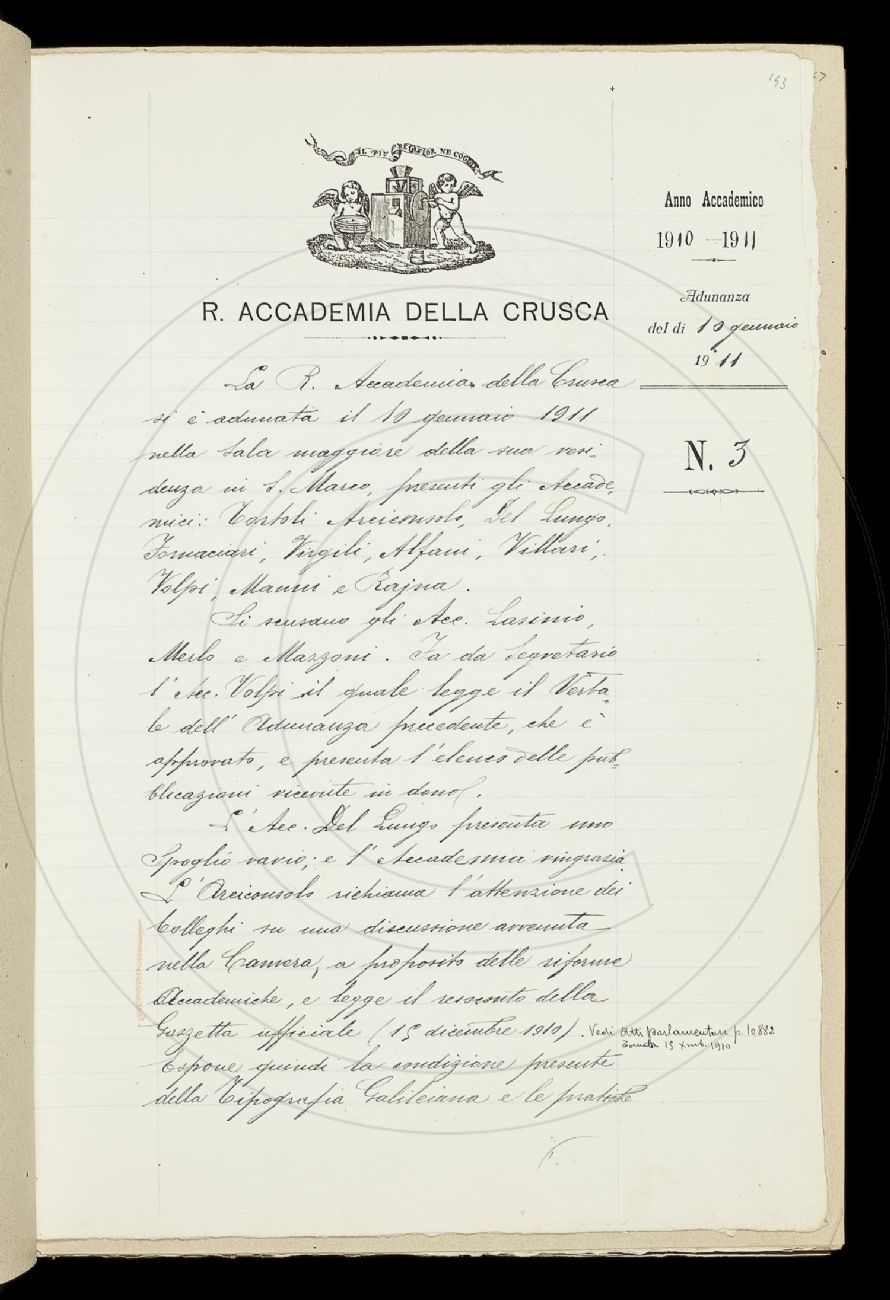 153
67
IL PIÙ BEL FIOR NE COGLIE
R. ACCADEMIA DELLA CRUSCA
Anno Accademico
1910 - 1911
Adunanza
del dì 10 gennaio
1911
N. 3
La R. Accademia della Crusca
si è adunata il 10 gennaio 1911
nella Sala maggiore della sua resi-
denza in S. Marco, presenti gli Accade-
mici: Tortoli Arciconsolo, Del Lungo,
Fornaciari, Virgili, Alfani, Villari,
Volpi, Manni e Rajna.
Si scusano gli Acc. Lasinio,
Merlo e Mazzoni. Fa da Segretario
l'Acc. Volpi il quale legge il Verba-
le dell'Adunanza precedente, che è
approvato, e presenta l'elenco delle pub-
blicazioni ricevute in dono.
L'Acc. Del Lungo presenta uno
Spoglio vario; e l'Accademia ringrazia.
L'Arciconsolo richiama l'attenzione dei
Colleghi su una discussione avvenuta
nella Camera, a proposito delle riforme
Accademiche, e legge il resoconto della
Gazzetta ufficiale (15 dicembre 1910). Vedi Atti parlamentari p. 10882
Tornata 15 Xmb. 1910
Espone quindi la condizione presente
della Tipografia Galileiana e le pratiche